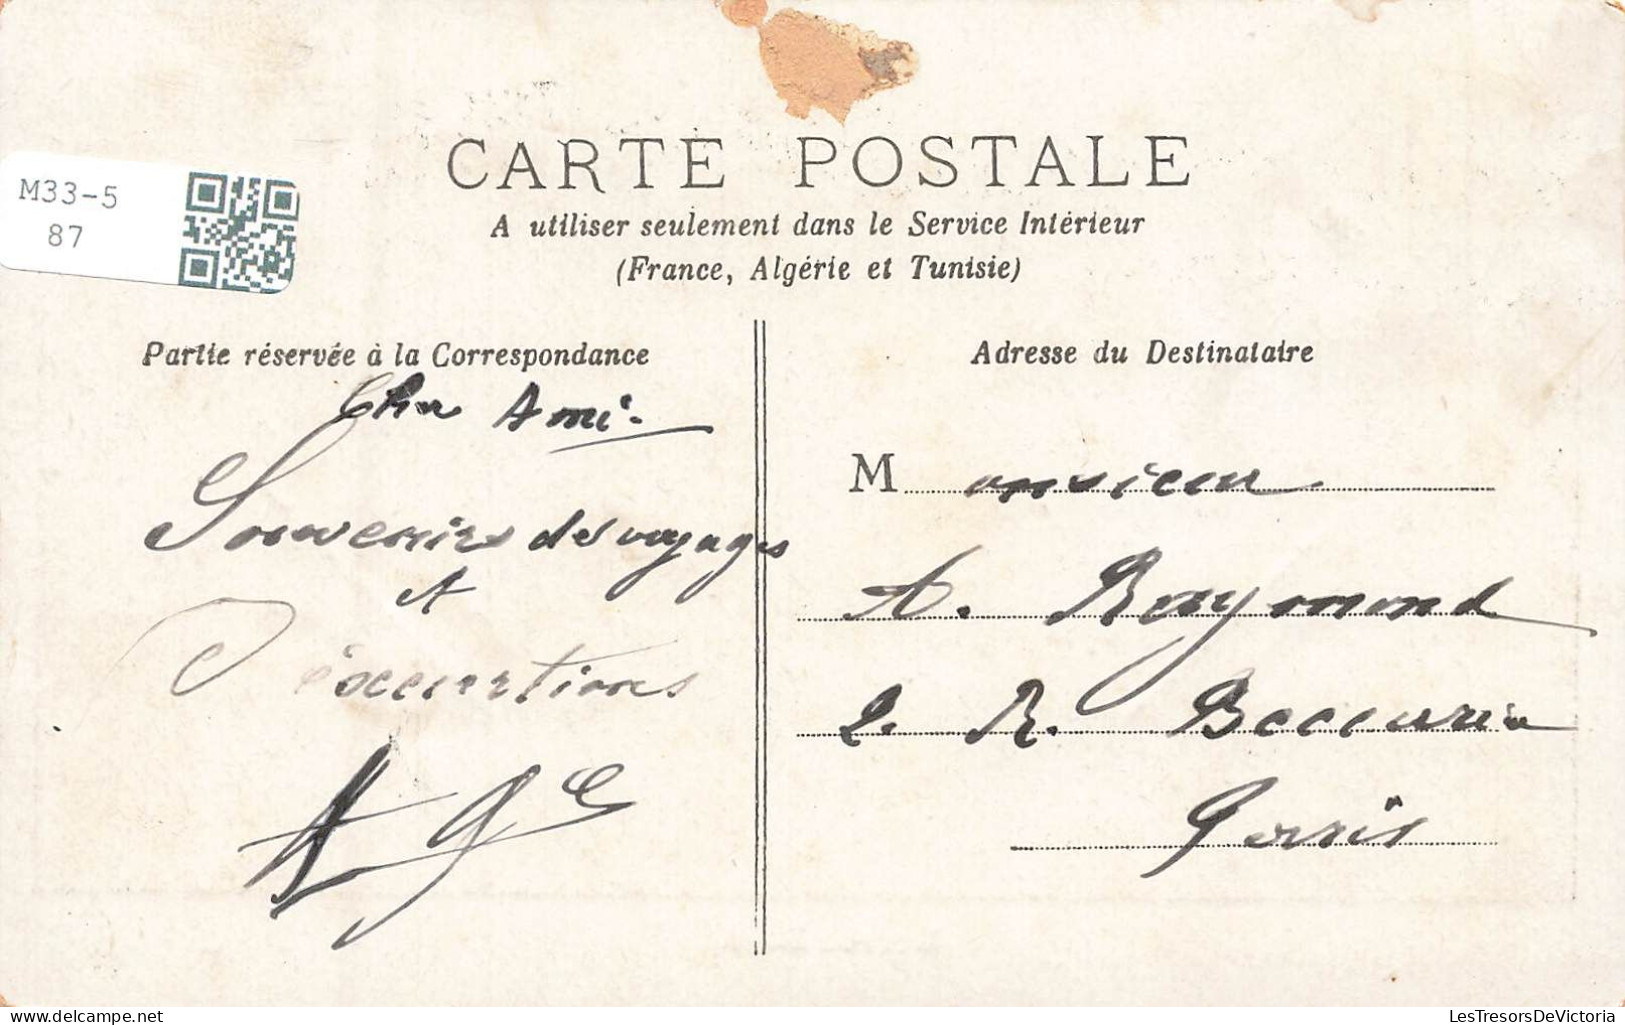 M33-5
87
CARTE POSTALE
A utiliser seulement dans le Service Intérieur
(France, Algérie et Tunisie)
Partie réservée à la Correspondance
Cher Ami.
Souvenirs des voyages
et
D'éxcurtions
Adresse du Destinataire
Monsieur
A. Raymond
2. R. Beccaria
Paris
LesTresorsDeVictoria